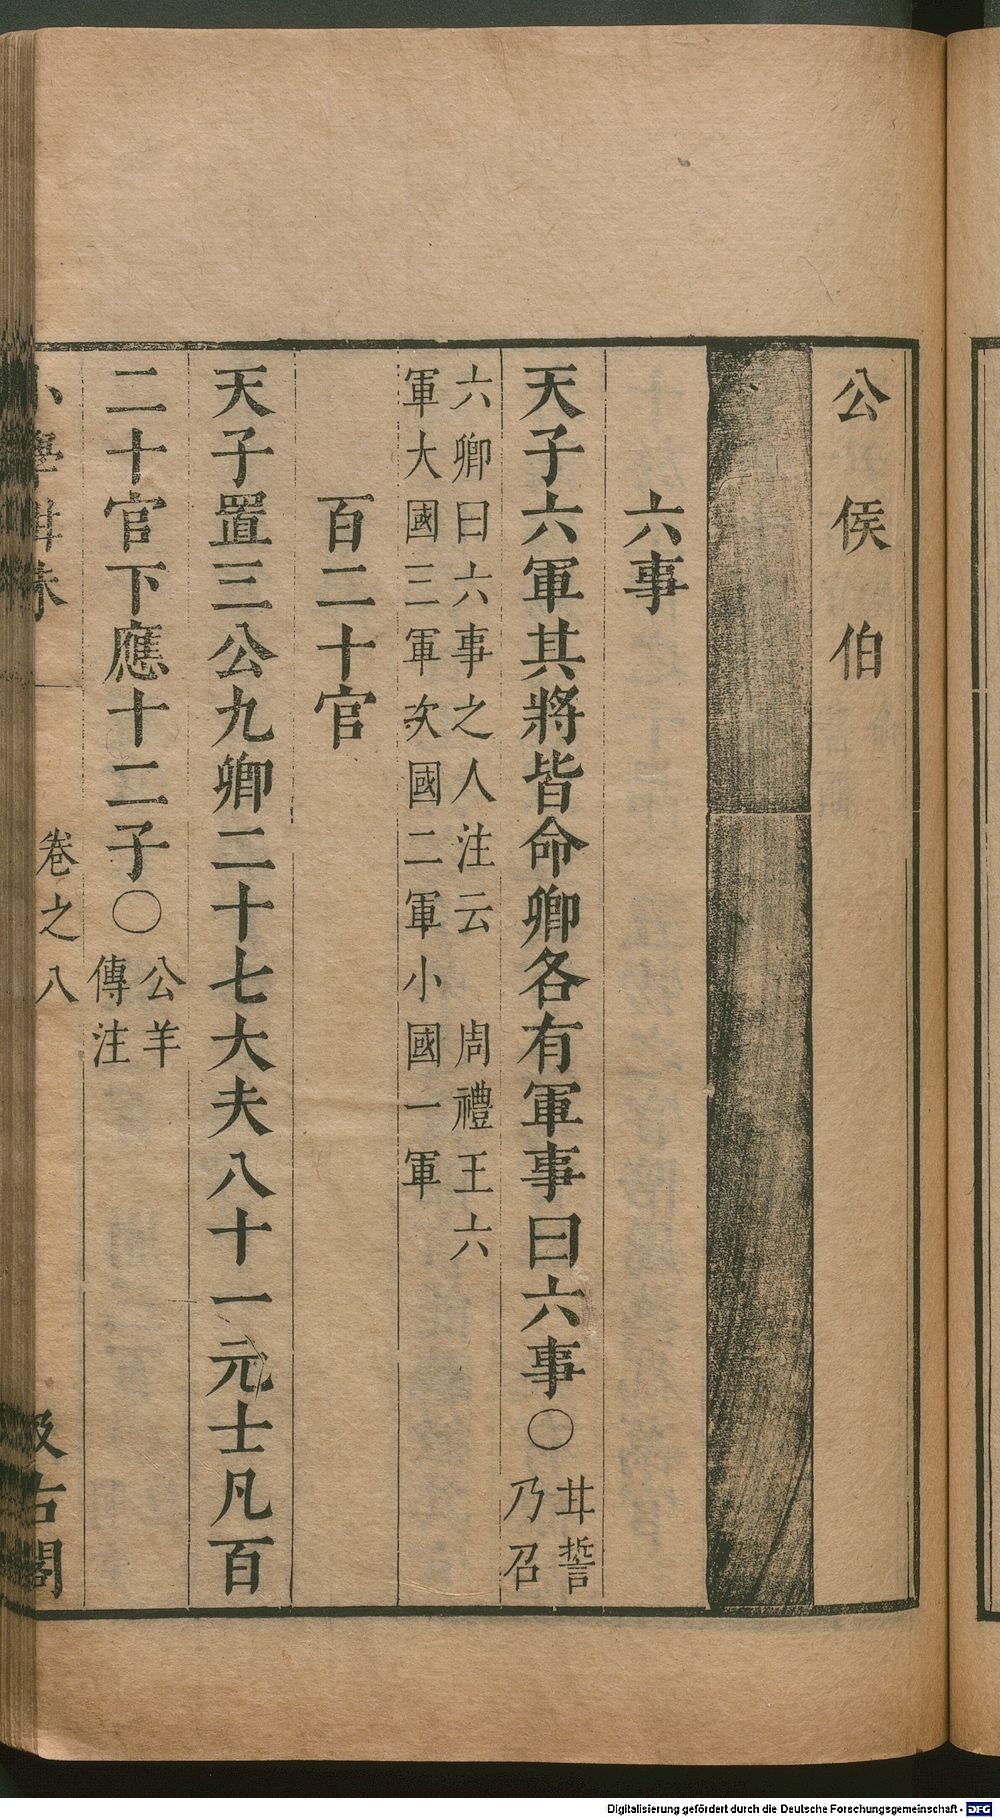 公侯伯
六事
天子六軍其將皆命卿各有軍事曰六事〇
甘誓
乃召
六卿曰六事之人注云　周禮王六
軍大國三軍次國二軍小國一軍
百二十官
天子置三公九卿二十七大夫八十一元士凡百
二十官下應十二子〇
公羊
傳注
小學紺珠　卷之八　汲古閣
Digitalisierung gefördert durch die Deutsche Forschungsgemeinschaft - DFG